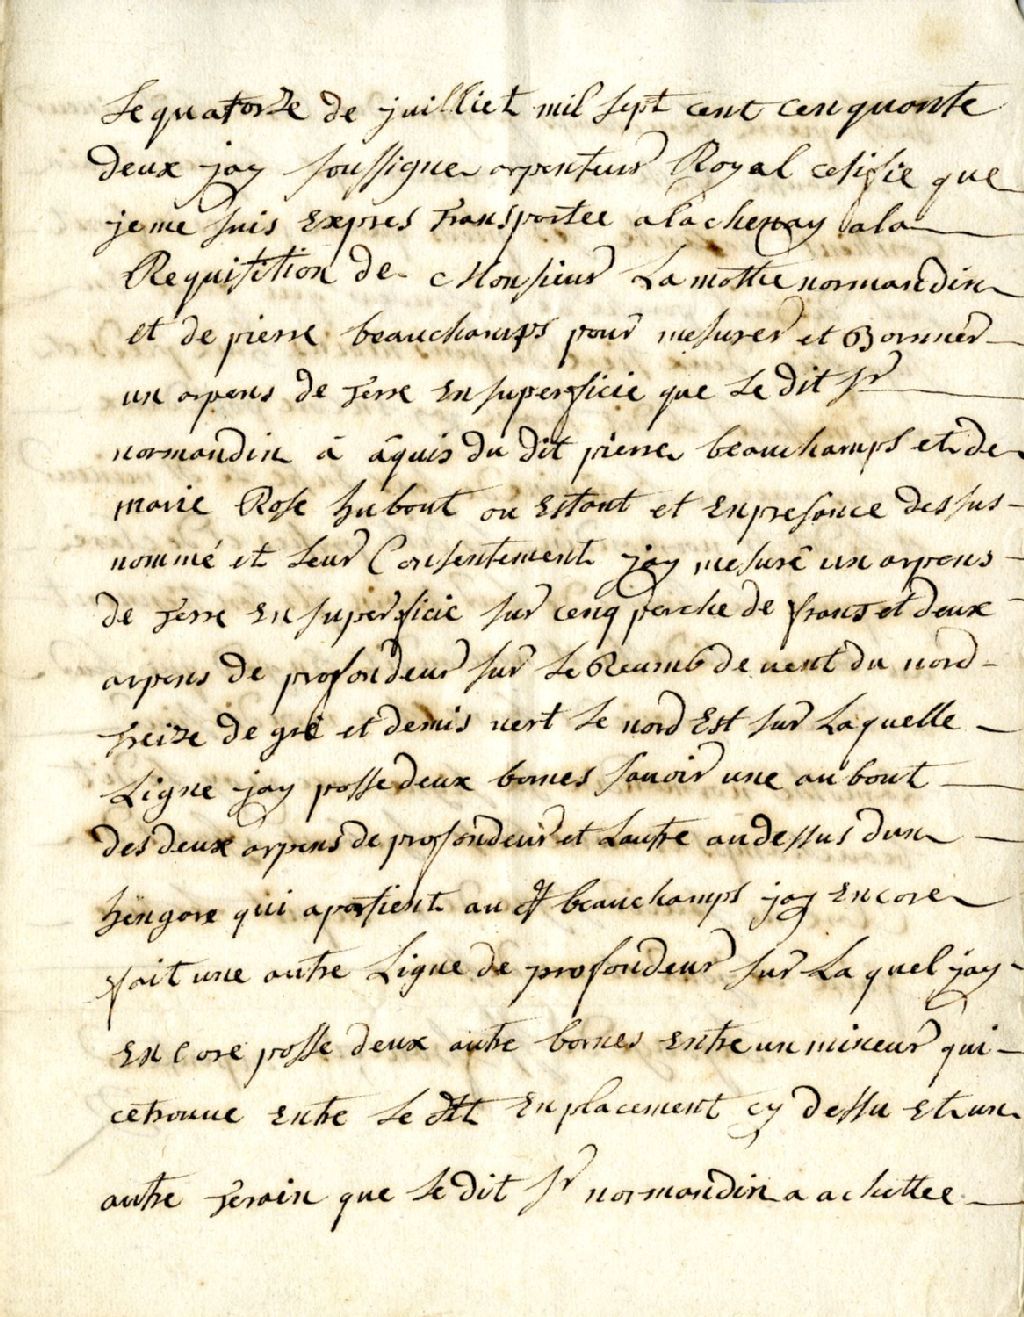 Le quatorze de juilliet mil sept cent cenquante
deux jay soussigne arpenteur Royal cetifie que
je me suis Expres Transportee a lachenay a la
Requisition de Monsieur La motte normandin
et de pierre beauchamps pour mesurer et Bornner
un arpens de Terre En superficie que Le dit Sr
normandin â âquis du dit pierre beauchamps et de
marie Rose hubout ou Estant et En presance des sus
nommé et Leur Consentement jay mesurê un arpens
de Terre En superficie sur cenq perche de frans et deux
arpens de profondeur sur Le Reumb de vent du nord
treize degré et demis vert Le nord Est sur Laquelle
Ligne jay posse deux bornes savoir une au bout
des deux arpens de profondeur et Lautre au dessus dun
hengare qui apartient au dt beauchamps jay Encore
fait une autre Ligne de profondeur sur La quel jay
En Core posse deux autre bornes Entre un mineur qui
ce trouve Entre Le dit Enplacement cy dessu Et un
autre Terain que Le dit Sr normandin a achettee